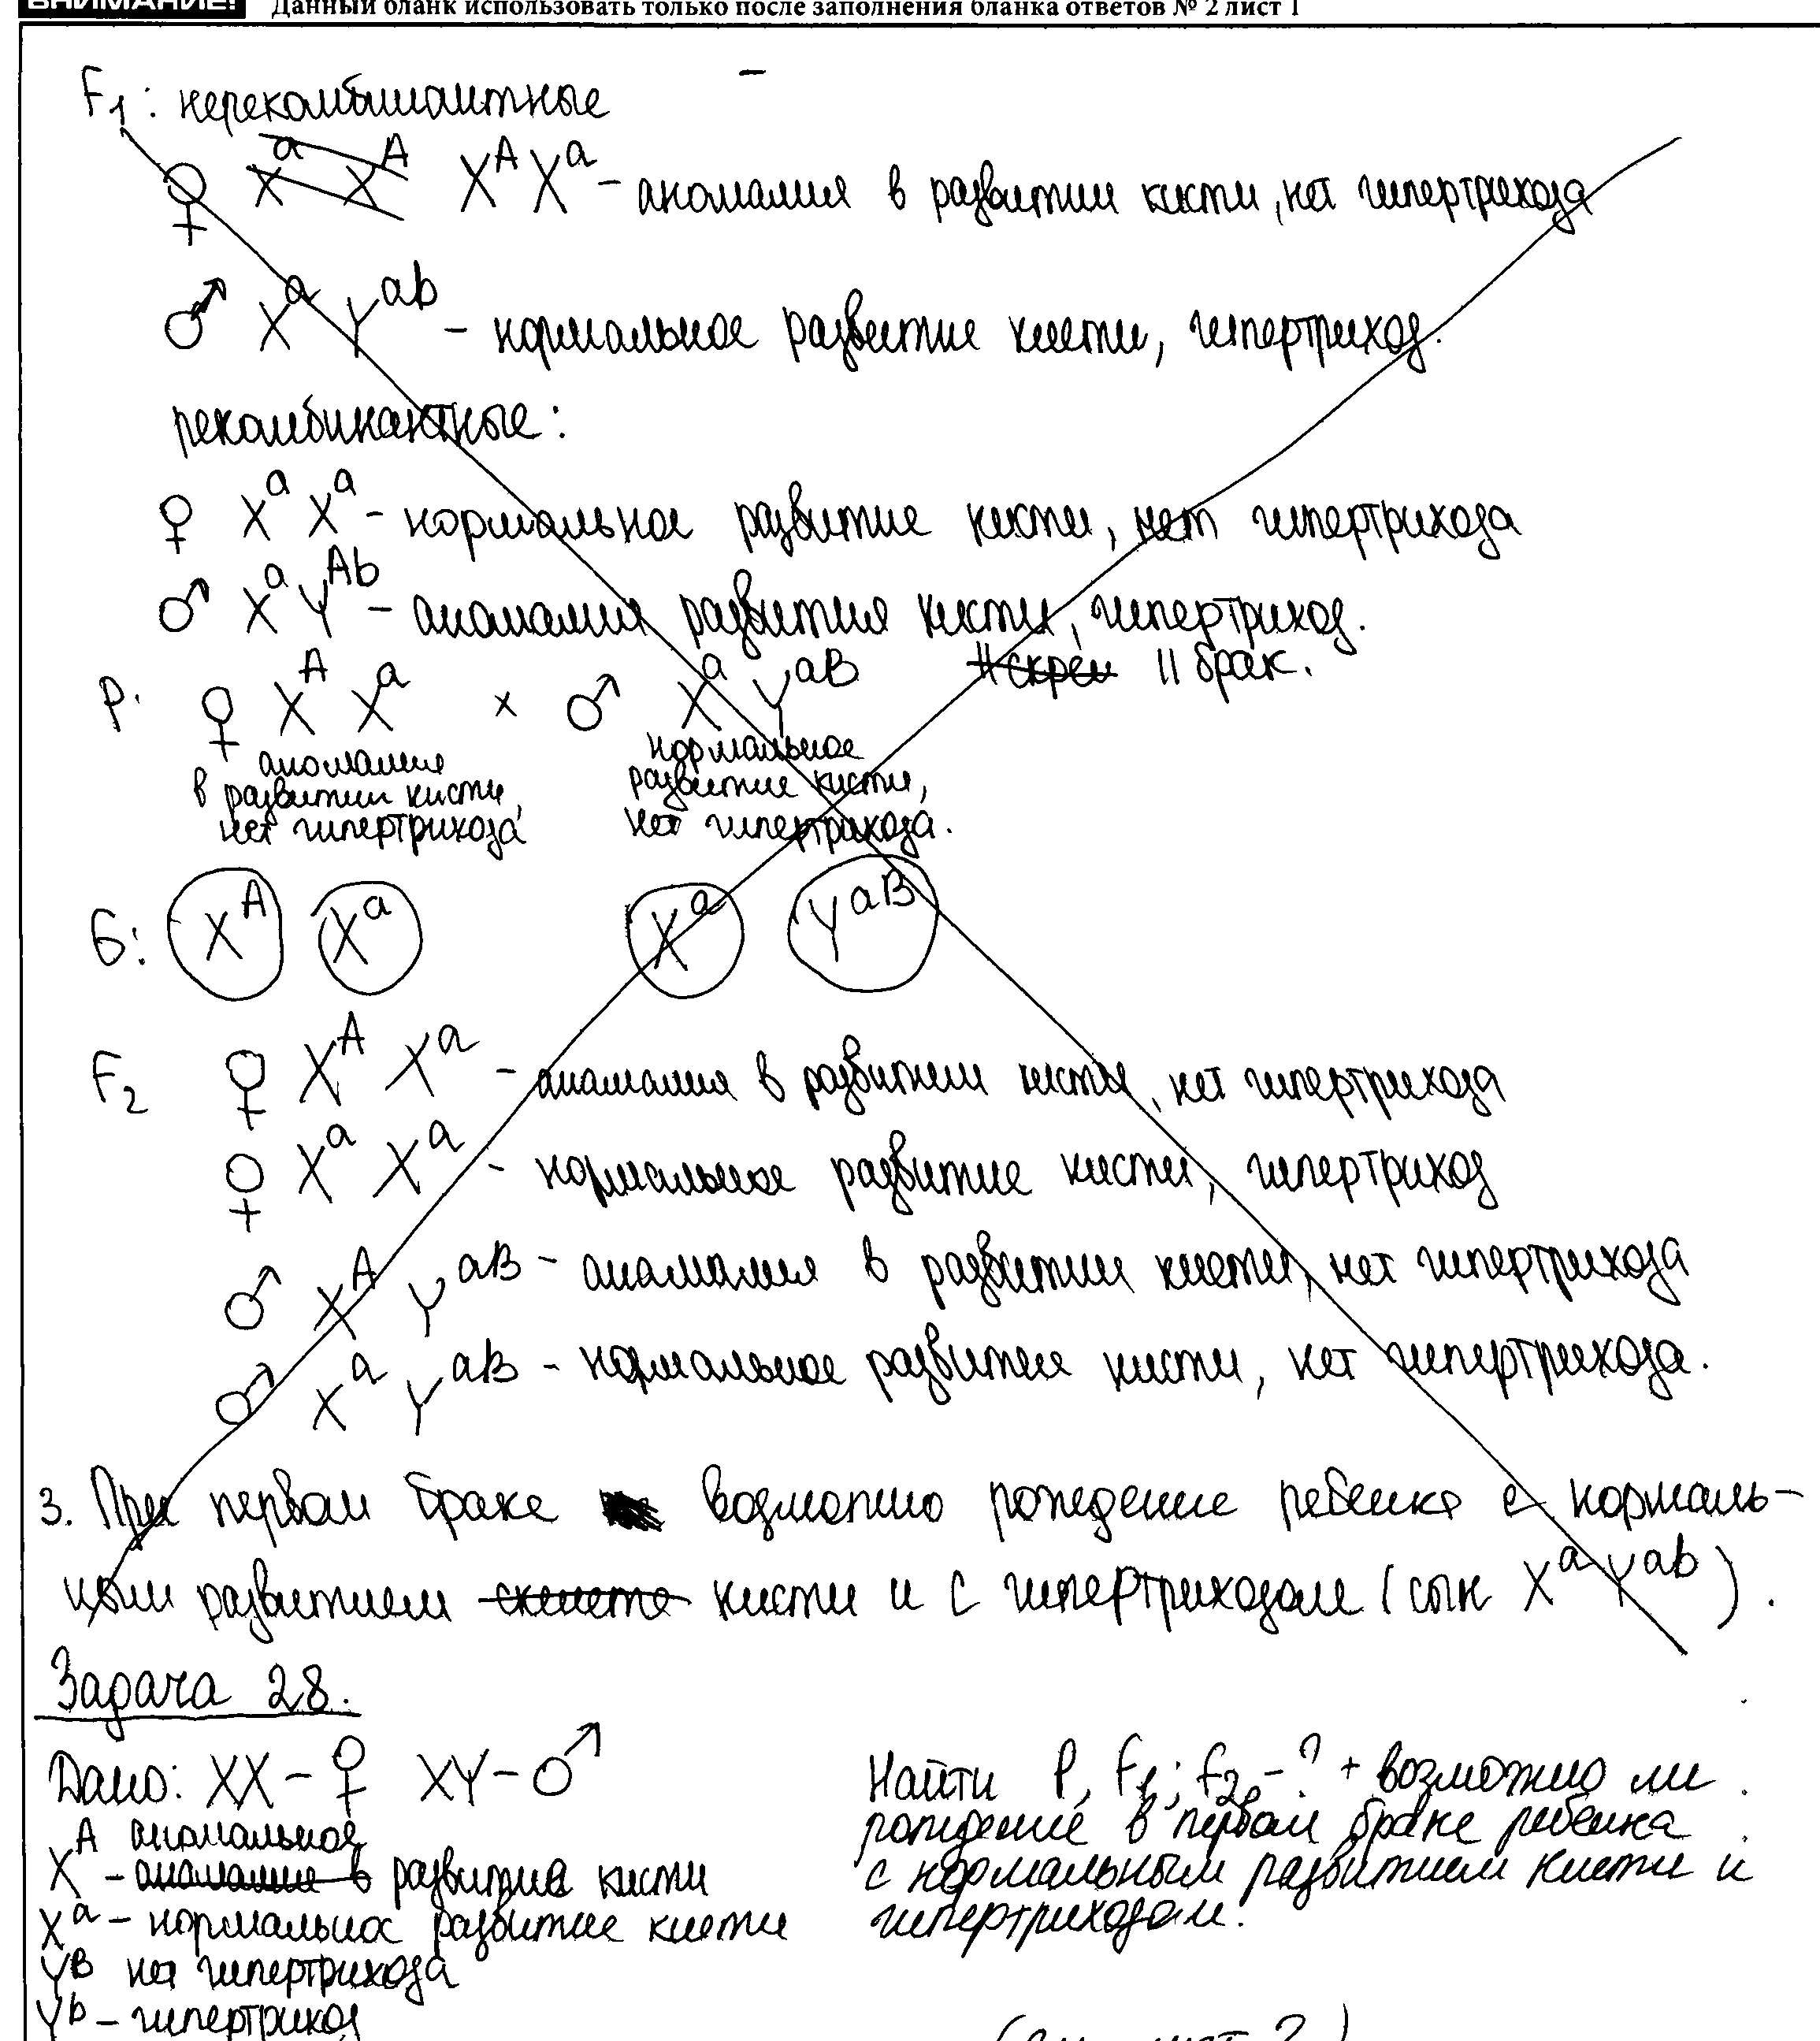 ВНИМАНИЕ! Данный бланк использовать только после заполнения бланка ответов № 2 лист 1
F₁: нерекомбинантные
♀ X^a X^A X^A X^a – аномалия в развитии кисти, нет гипертрихоза
♂ X^a Y^ab – нормальное развитие кисти, гипертрихоз.
рекомбинантные:
♀ X^a X^a – нормальное развитие кисти, нет гипертрихоза
♂ X^a Y^Ab – аномалия развития кисти, гипертрихоз.
P. ♀ X^A X^a × ♂ X^a Y^aB II брак.
аномалия в развитии кисти, нет гипертрихоза
нормальное развитие кисти, нет гипертрихоза.
G: X^A X^a X^a Y^aB
F₂ ♀ X^A X^a – аномалия в развитии кисти, нет гипертрихоза
♀ X^a X^a – нормальное развитие кисти, гипертрихоз
♂ X^A Y^aB – аномалия в развитии кисти, нет гипертрихоза
♂ X^a Y^aB – нормальное развитие кисти, нет гипертрихоза.
3. При первом браке возможно рождение ребенка с нормаль-
ным развитием скелета кисти и с гипертрихозом (сын X^a Y^ab).
Задача 28.
Дано: XX – ♀ XY – ♂
X^A – аномалия в аномальное развитие кисти
X^a – нормальное развитие кисти
Y^B нет гипертрихоза
Y^b – гипертрихоз
Найти P, F₁; F₂ – ? + возможно ли
рождение в первом браке ребенка
с нормальным развитием кисти и
гипертрихозом.